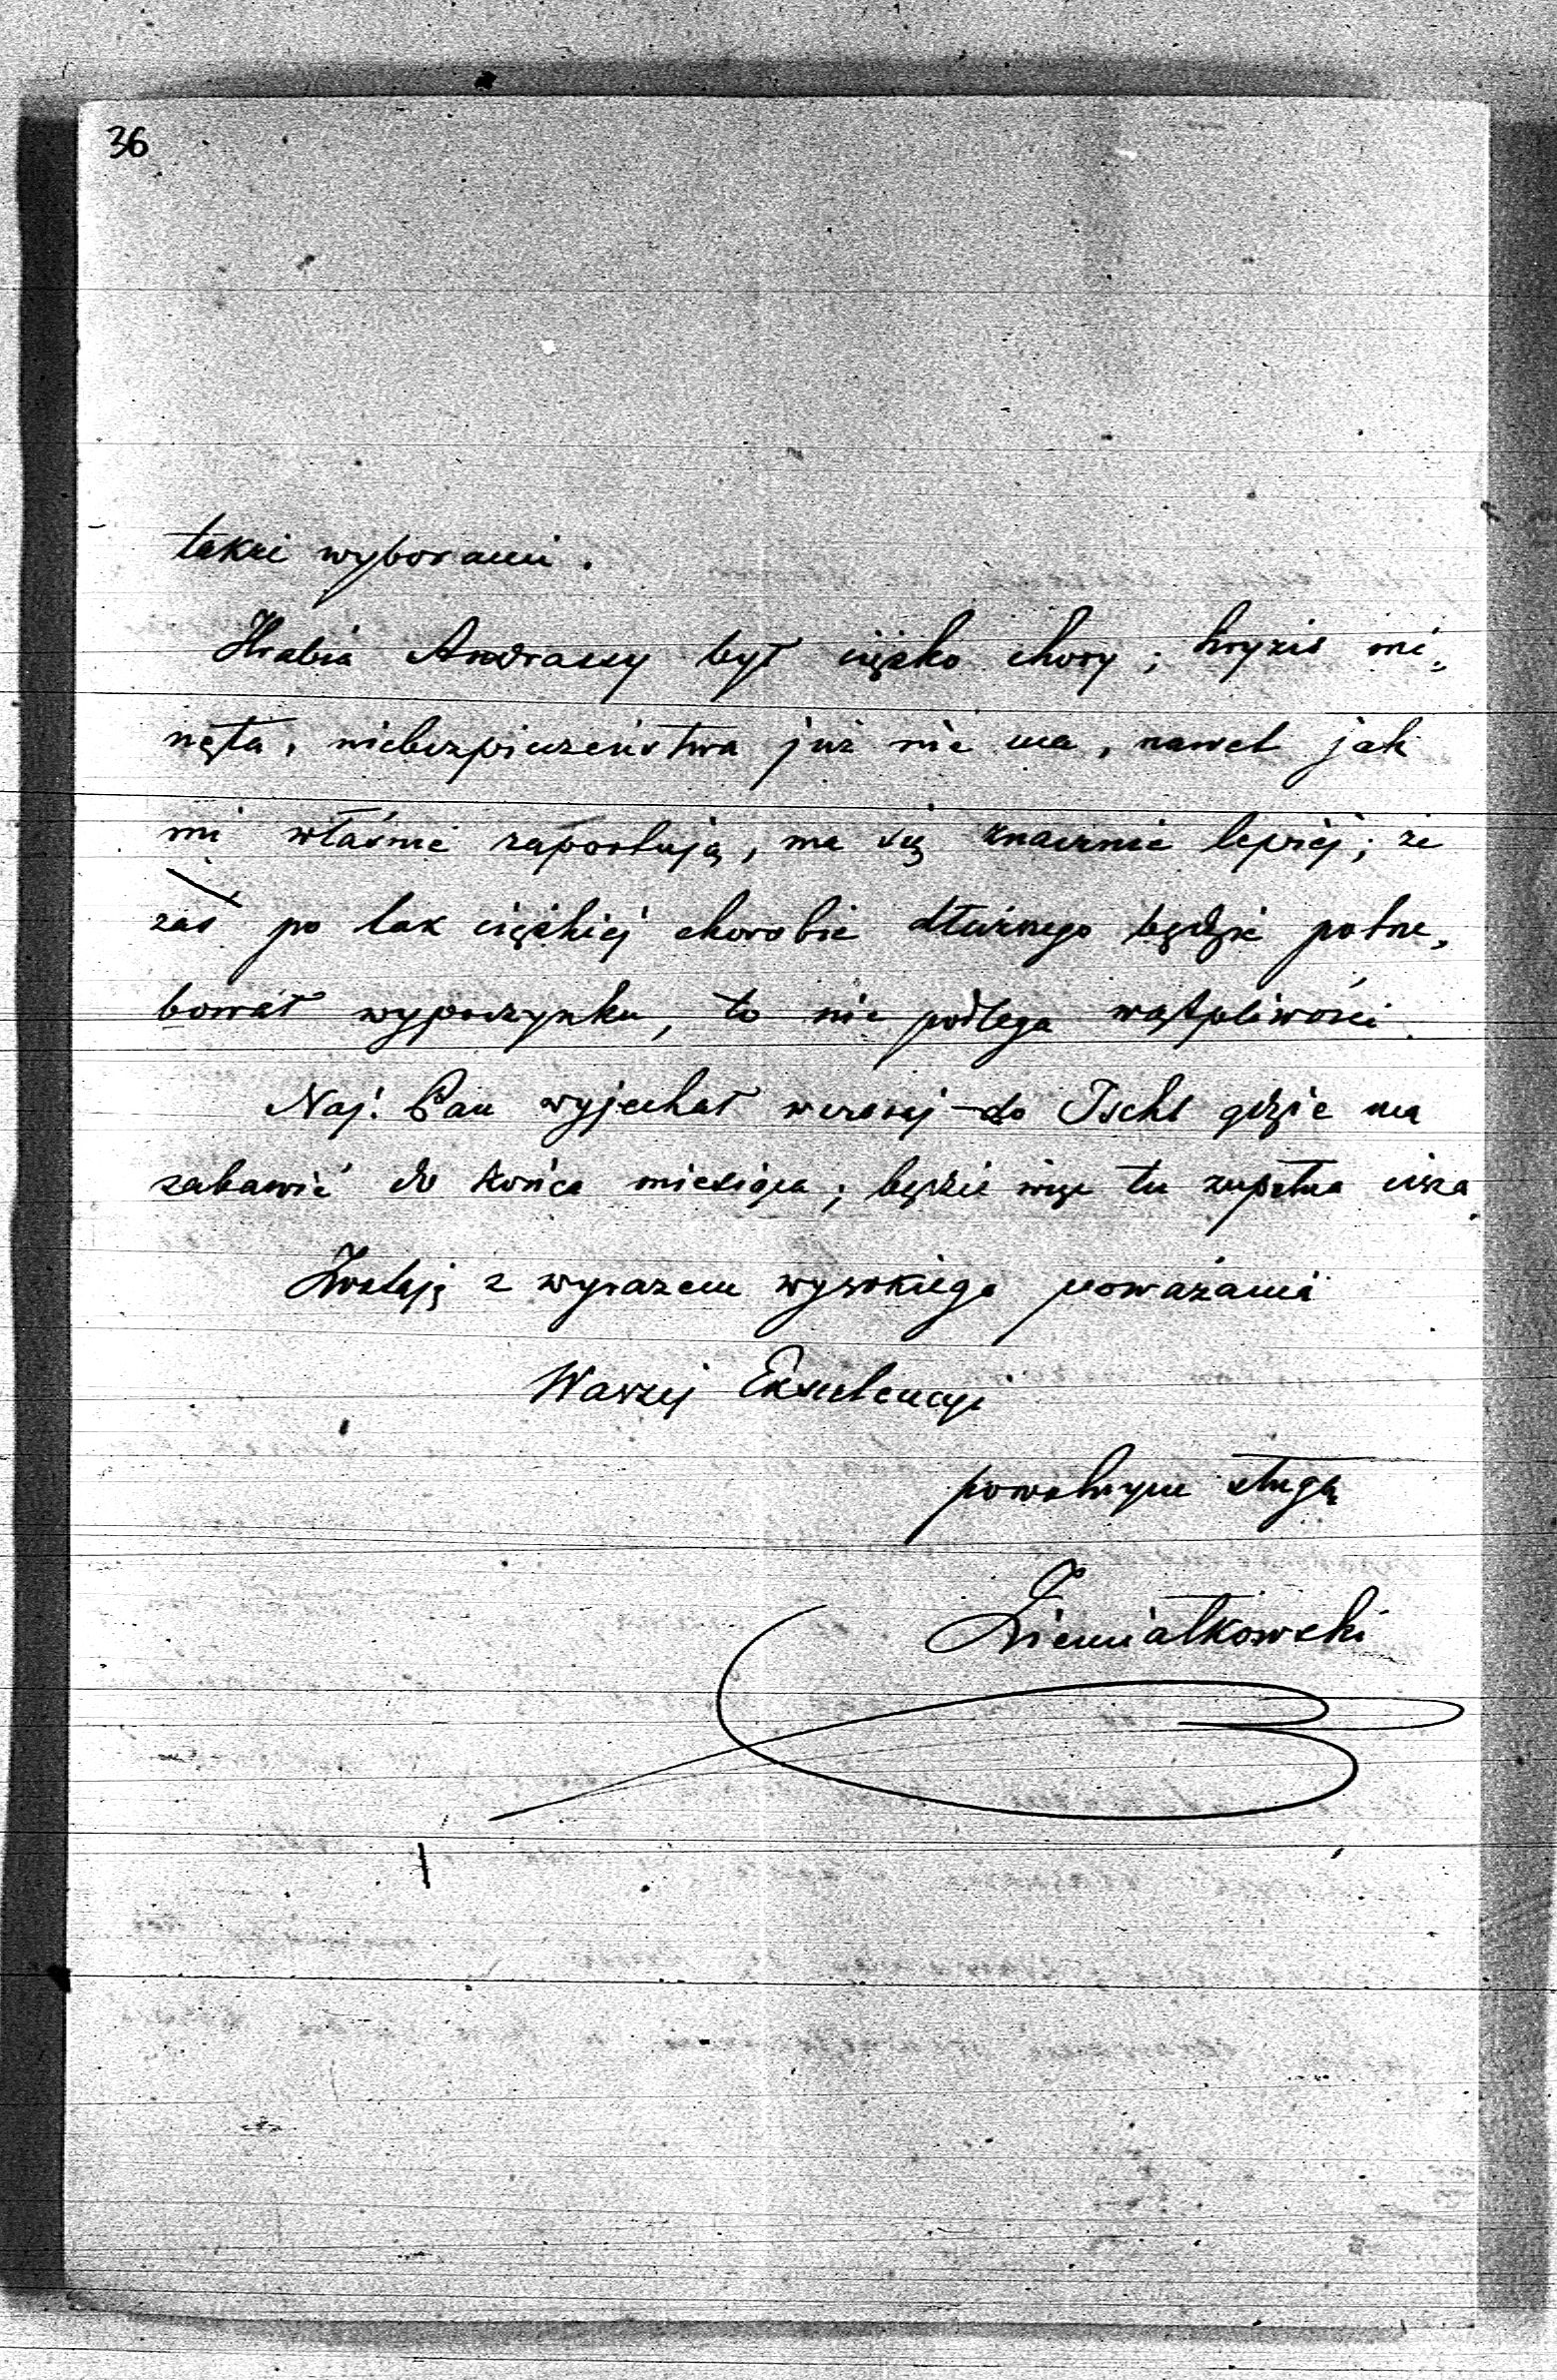 36
także wyborami.
Hrabia Andrassy był ciężko chory; kryzis mi-
nęła, niebezpieczeństwa już nie ma, nawet jak
mi właśnie raportują, ma się znacznie lepiej; że
zaś po tak ciężkiej chorobie dłuższego będzie potrze-
bował wypoczynku, to nie podlega wątpliwości.
Naj. Pan wyjechał wczoraj do Ischl gdzie ma
zabawić do końca miesiąca; będzie więc tu zupełna cisza.
Zostaję z wyrazem wysokiego poważania
Waszej Excelencyi
powolnym sługą
Ziemiałkowski